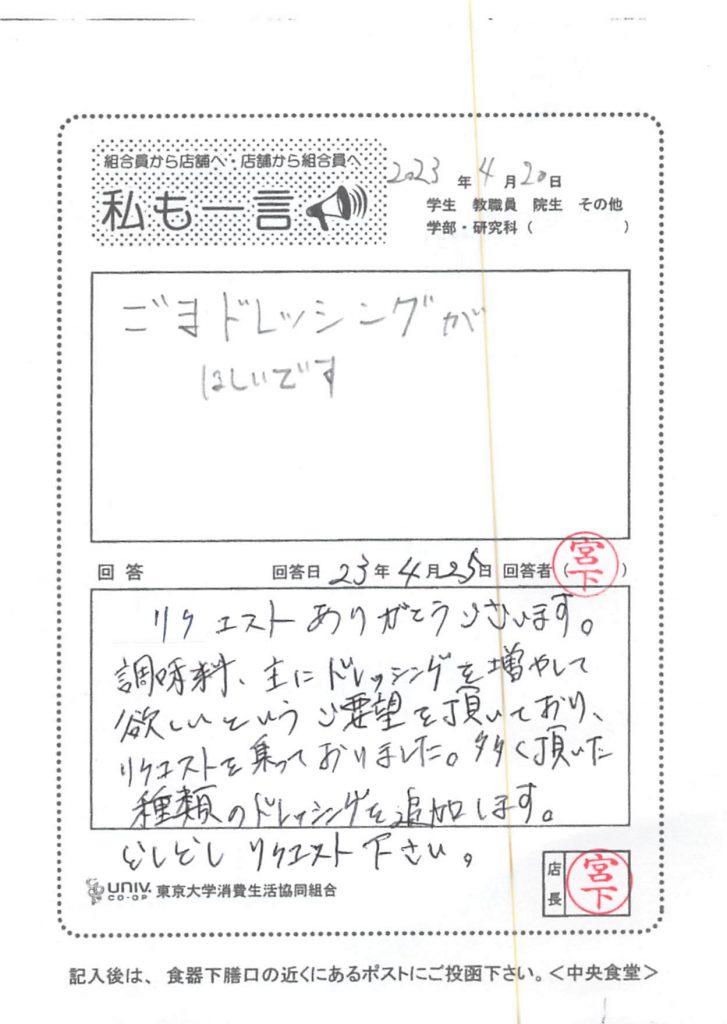 組合員から店舗へ・店舗から組合員へ
私も一言
2023年4月20日
学生 教職員 院生 その他
学部・研究科( )
ごまドレッシングが
ほしいです
回答 回答日 23年4月25日 回答者(宮下)
リクエストありがとうございます。
調味料、主にドレッシングを増やして
欲しいというご要望を頂いており、
リクエストを募っておりました。多く頂いた
種類のドレッシングを追加します。
どしどしリクエスト下さい。
UNIV. CO-OP 東京大学消費生活協同組合
店長 宮下
記入後は、食器下膳口の近くにあるポストにご投函下さい。<中央食堂>